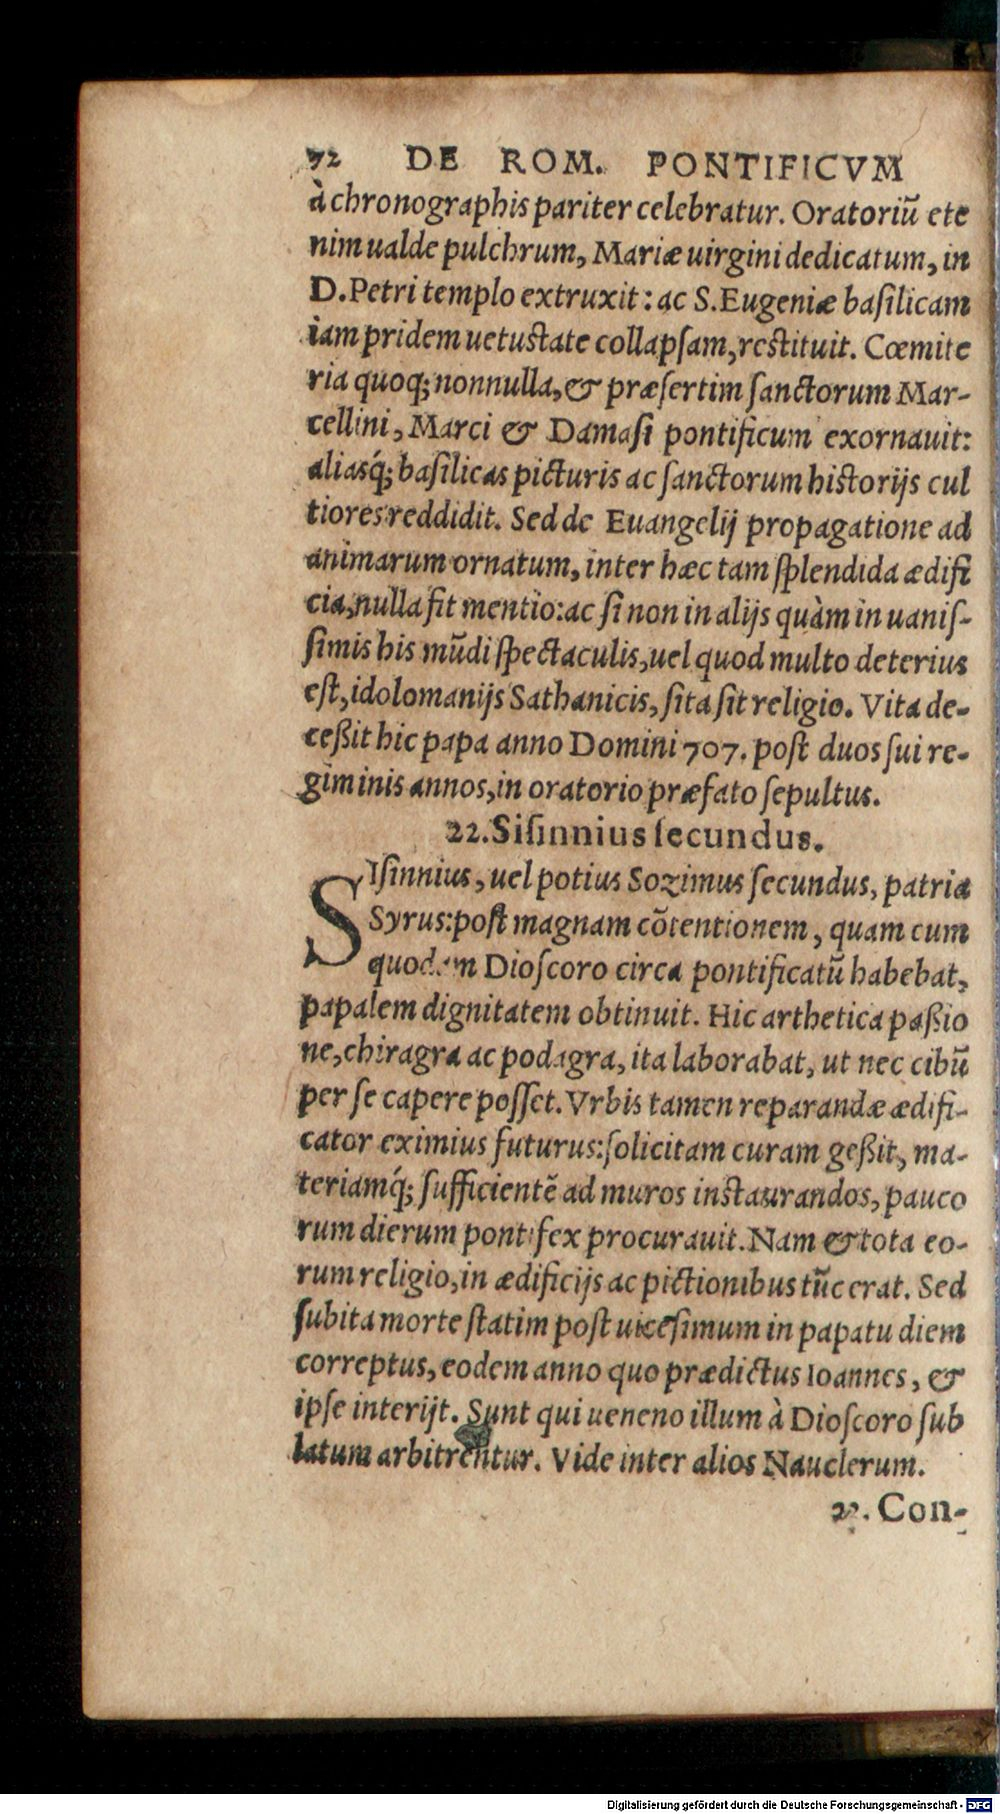 72 DE ROM. PONTIFICVM
à chronographis pariter celebratur. Oratoriũ ete
nim ualde pulchrum, Mariæ uirgini dedicatum, in
D. Petri templo extruxit: ac S. Eugeniæ baſilicam
iam pridem uetuſtate collapſam, reſtituit. Cœmite
ria quoq; nonnulla, & præſertim ſanctorum Mar-
cellini, Marci & Damaſi pontificum exornauit:
aliasq́; baſilicas picturis ac ſanctorum hiſtorijs cul
tiores reddidit. Sed de Euangelij propagatione ad
animarum ornatum, inter hæc tam ſplendida ædifi
cia, nulla fit mentio: ac ſi non in alijs quàm in uaniſ-
ſimis his mũdi ſpectaculis, uel quod multo deterius
eſt, idolomanijs Sathanicis, ſita ſit religio. Vita de-
ceßit hic papa anno Domini 707. poſt duos ſui re-
giminis annos, in oratorio præfato ſepultus.
22. Siſinnius ſecundus.
SIſinnius, uel potius Sozimus ſecundus, patria
Syrus: poſt magnam cõtentionem, quam cum
quodam Dioſcoro circa pontificatũ habebat,
papalem dignitatem obtinuit. Hic arthetica paßio
ne, chiragra ac podagra, ita laborabat, ut nec cibũ
per ſe capere poſſet. Vrbis tamen reparandæ ædifi-
cator eximius futurus: ſolicitam curam geßit, ma-
teriamq́; ſufficientẽ ad muros inſtaurandos, pauco
rum dierum pontifex procurauit. Nam & tota eo-
rum religio, in ædificijs ac pictionibus tũc erat. Sed
ſubita morte ſtatim poſt uiceſimum in papatu diem
correptus, eodem anno quo prædictus Ioannes, &
ipſe interijt. Sunt qui ueneno illum à Dioſcoro ſub
latum arbitrentur. Vide inter alios Nauclerum.
Con-
Digitalisierung gefördert durch die Deutsche Forschungsgemeinschaft - DFG